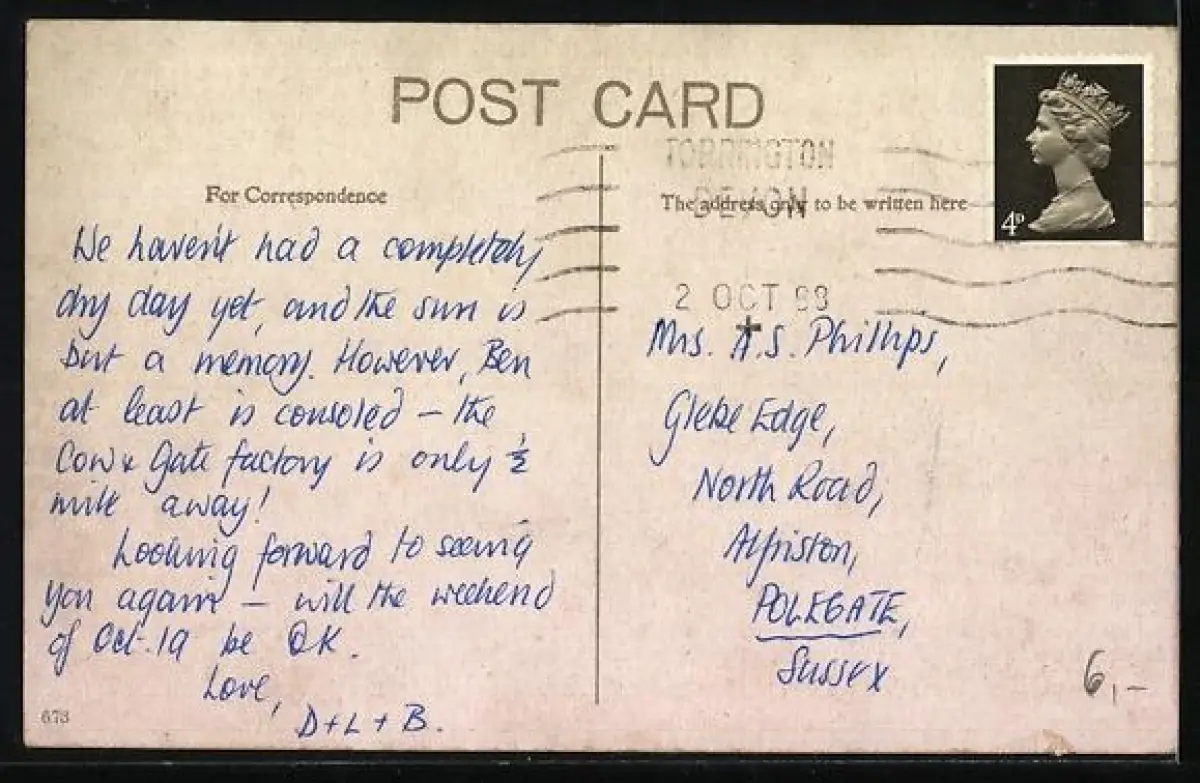 POST CARD
TORRINGTON
DEVON
2 OCT
For Correspondence
The address only to be written here
4P
We haven't had a completely
dry day yet, and the sun is
but a memory. However, Ben
at least is consoled – the
Cow & Gate factory is only ½
mile away!
Looking forward to seeing
you again – will the weekend
of Oct. 19 be OK.
Love,
D + L + B.
673
Mrs. A.S. Phillips,
Glebe Edge,
North Road,
Alfriston,
POLEGATE,
Sussex
6,–